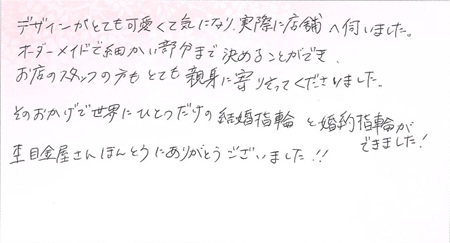 デザインがとても可愛くて気になり、実際に店舗へ伺いました。
オーダーメイドで細かい部分まで決めることができ、
お店のスタッフの方もとても親身に寄りそってくださりました。
そのおかげで世界にひとつだけの結婚指輪と婚約指輪が
できました!
杢目金屋さんほんとうにありがとうございました!!